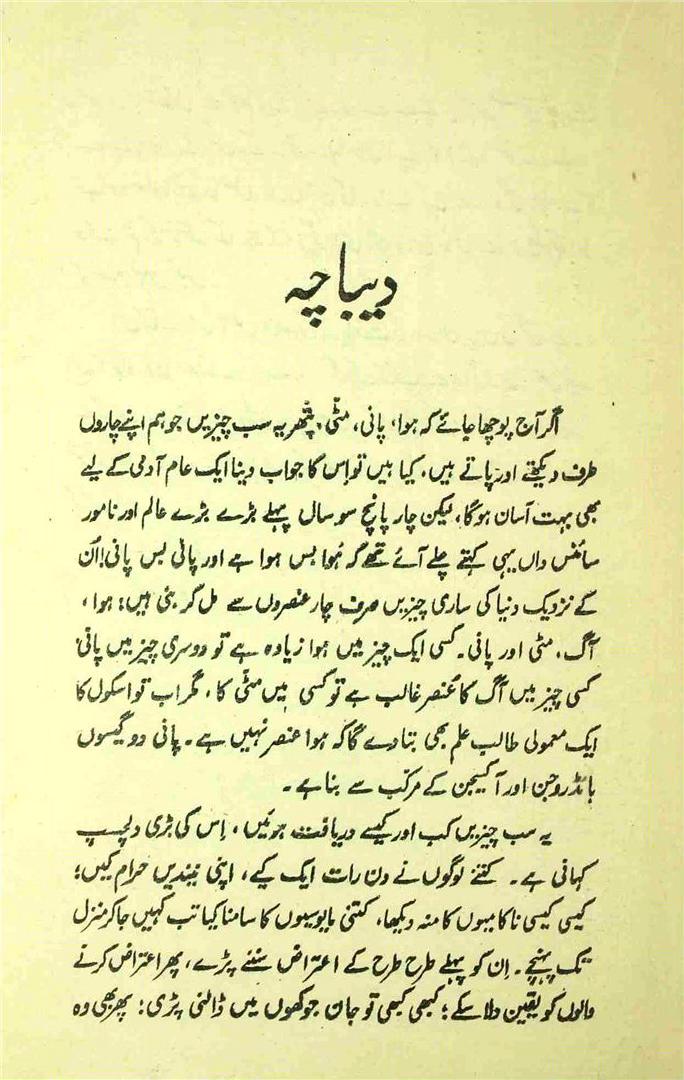 دیباچہ
اگر آج پوچھا جائے کہ ہوا، پانی، مٹّی، پتّھر یہ سب چیزیں جو ہم اپنے چاروں
طرف دیکھتے اور پاتے ہیں، کیا ہیں تو اِس کا جواب دینا ایک عام آدمی کے لیے
بھی بہت آسان ہوگا، لیکن چار پانچ سو سال پہلے بڑے بڑے عالم اور نامور
سائنس داں یہی کہتے چلے آئے تھے کہ ہُوا بس ہوا ہے اور پانی بس پانی! اُن
کے نزدیک دنیا کی ساری چیزیں صرف چار عنصروں سے مل کر بنی ہیں: ہوا،
آگ، مٹی اور پانی۔ کسی ایک چیز میں ہوا زیادہ ہے تو دوسری چیز میں پانی،
کسی چیز میں آگ کا عُنصر غالب ہے تو کسی میں مٹّی کا، مگر اب تو اسکول کا
ایک معمولی طالب علم بھی بتا دے گا کہ ہوا عنصر نہیں ہے۔ پانی دو گیسوں
ہائڈروجن اور آکیجن کے مرکب سے بنا ہے۔
یہ سب چیزیں کب اور کیسے دریافت ہوئیں، اِس کی بڑی دلچسپ
کہانی ہے۔ کتنے لوگوں نے دن رات ایک کیے، اپنی نیندیں حرام کیں؛
کیسی کیسی ناکامیوں کا منہ دیکھا، کتنی مایوسیوں کا سامنا کیا تب کہیں جاکر منزل
تک پہنچے۔ اِن کو پہلے طرح طرح کے اعتراض سننے پڑے، پھر اعتراض کرنے
والوں کو یقین دلا سکے؛ کبھی کبھی تو جان جوکھوں میں ڈالنی پڑی؛ پھر بھی وہ